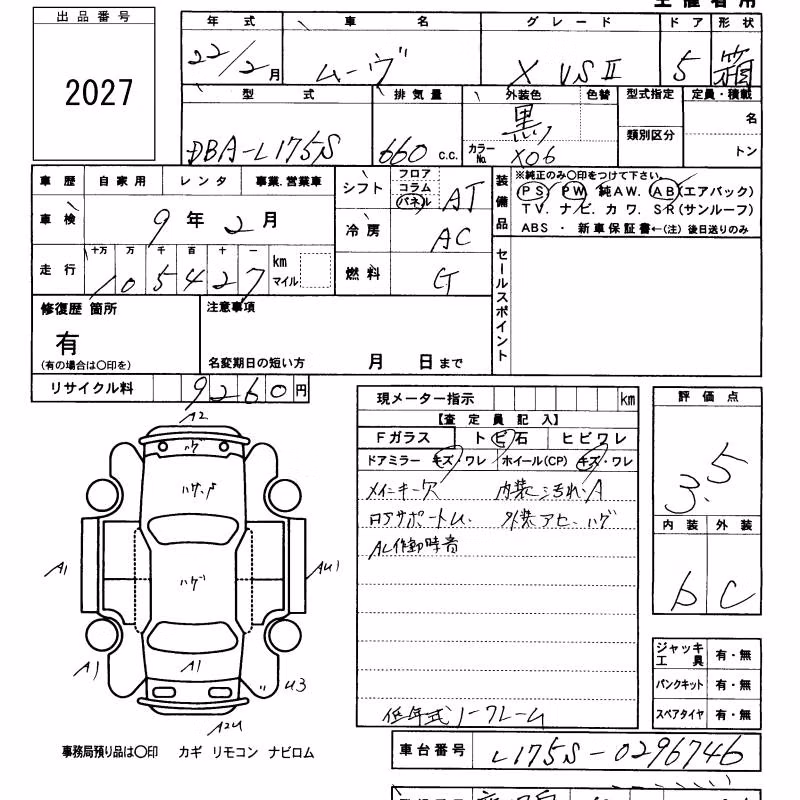 主催者用
出品番号
2027
年式 車名 グレード ドア 形状
22/2月 ムーヴ X VSⅡ 5 箱
型式 排気量 外装色 色替 型式指定 定員・積載
DBA-L175S 660 c.c. 黒 類別区分 名
カラーNo. X06 トン
車歴 自家用 レンタ 事業.営業車
車検 9年2月
十万 万 千 百 十 一
走行 105427 km マイル
シフト フロア コラム パネル AT
冷房 AC
燃料 G
装備品 ※純正のみ○印をつけて下さい。
PS PW 純AW. AB(エアバック)
TV. ナビ. カワ. SR(サンルーフ)
ABS ・ 新車保証書←(注) 後日送りのみ
セールスポイント
修復歴 箇所
有
(有の場合は○印を)
注意事項
名変期日の短い方 月 日まで
リサイクル料 9260円
現メーター指示 km
【査定員記入】
Fガラス トビ石 ヒビワレ
ドアミラー キズ・ワレ ホイール(CP) キズ・ワレ
メインキー欠 内装ヨゴレ.A
ロアサポートU. 外装アセ. ハゲ
低年式ノークレーム
A2
ハゲ
ハゲ
A1
AU1
A1
A1
U3
A2U
評価点
3.5
内装 外装
b C
ジャッキ工具 有・無
パンクキット 有・無
スペアタイヤ 有・無
事務局預り品は○印 カギ リモコン ナビロム
車台番号 L175S-0296746